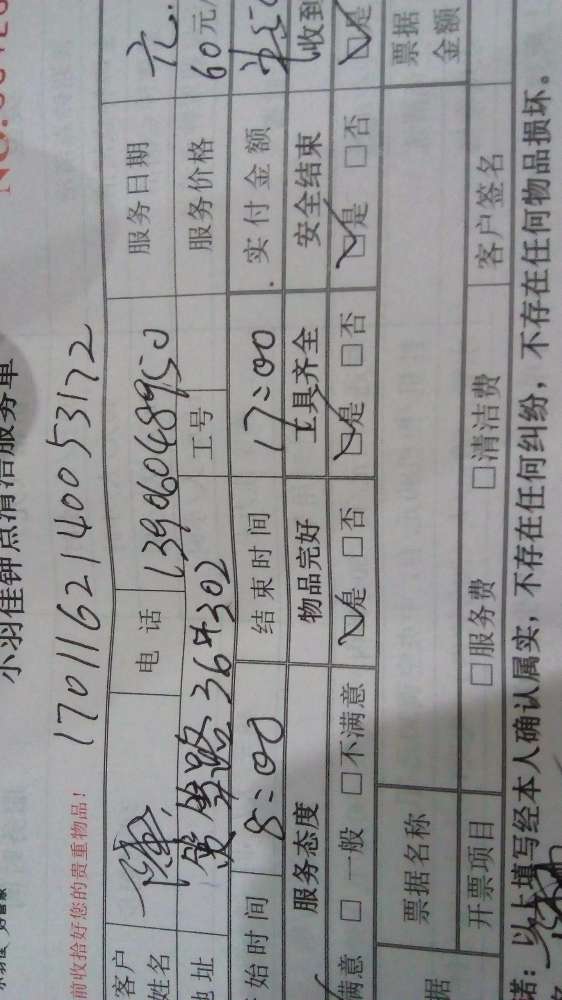 小羽佳 好管家
小羽佳钟点清洁服务单
前收拾好您的贵重物品！
1701162140053172
客户姓名 陈 电话 13906048950 服务日期
地址 路36 302 工号 服务价格 60元/
始时间 8:00 结束时间 17:00 实付金额
服务态度 物品完好 工具齐全 安全结束 收到
满意 □一般 □不满意 是 □否 是 □否 是 □否 是
据 票据名称 票据金额
开票项目 □服务费 □清洁费 客户签名
诺：以上填写经本人确认属实，不存在任何纠纷，不存在任何物品损坏。